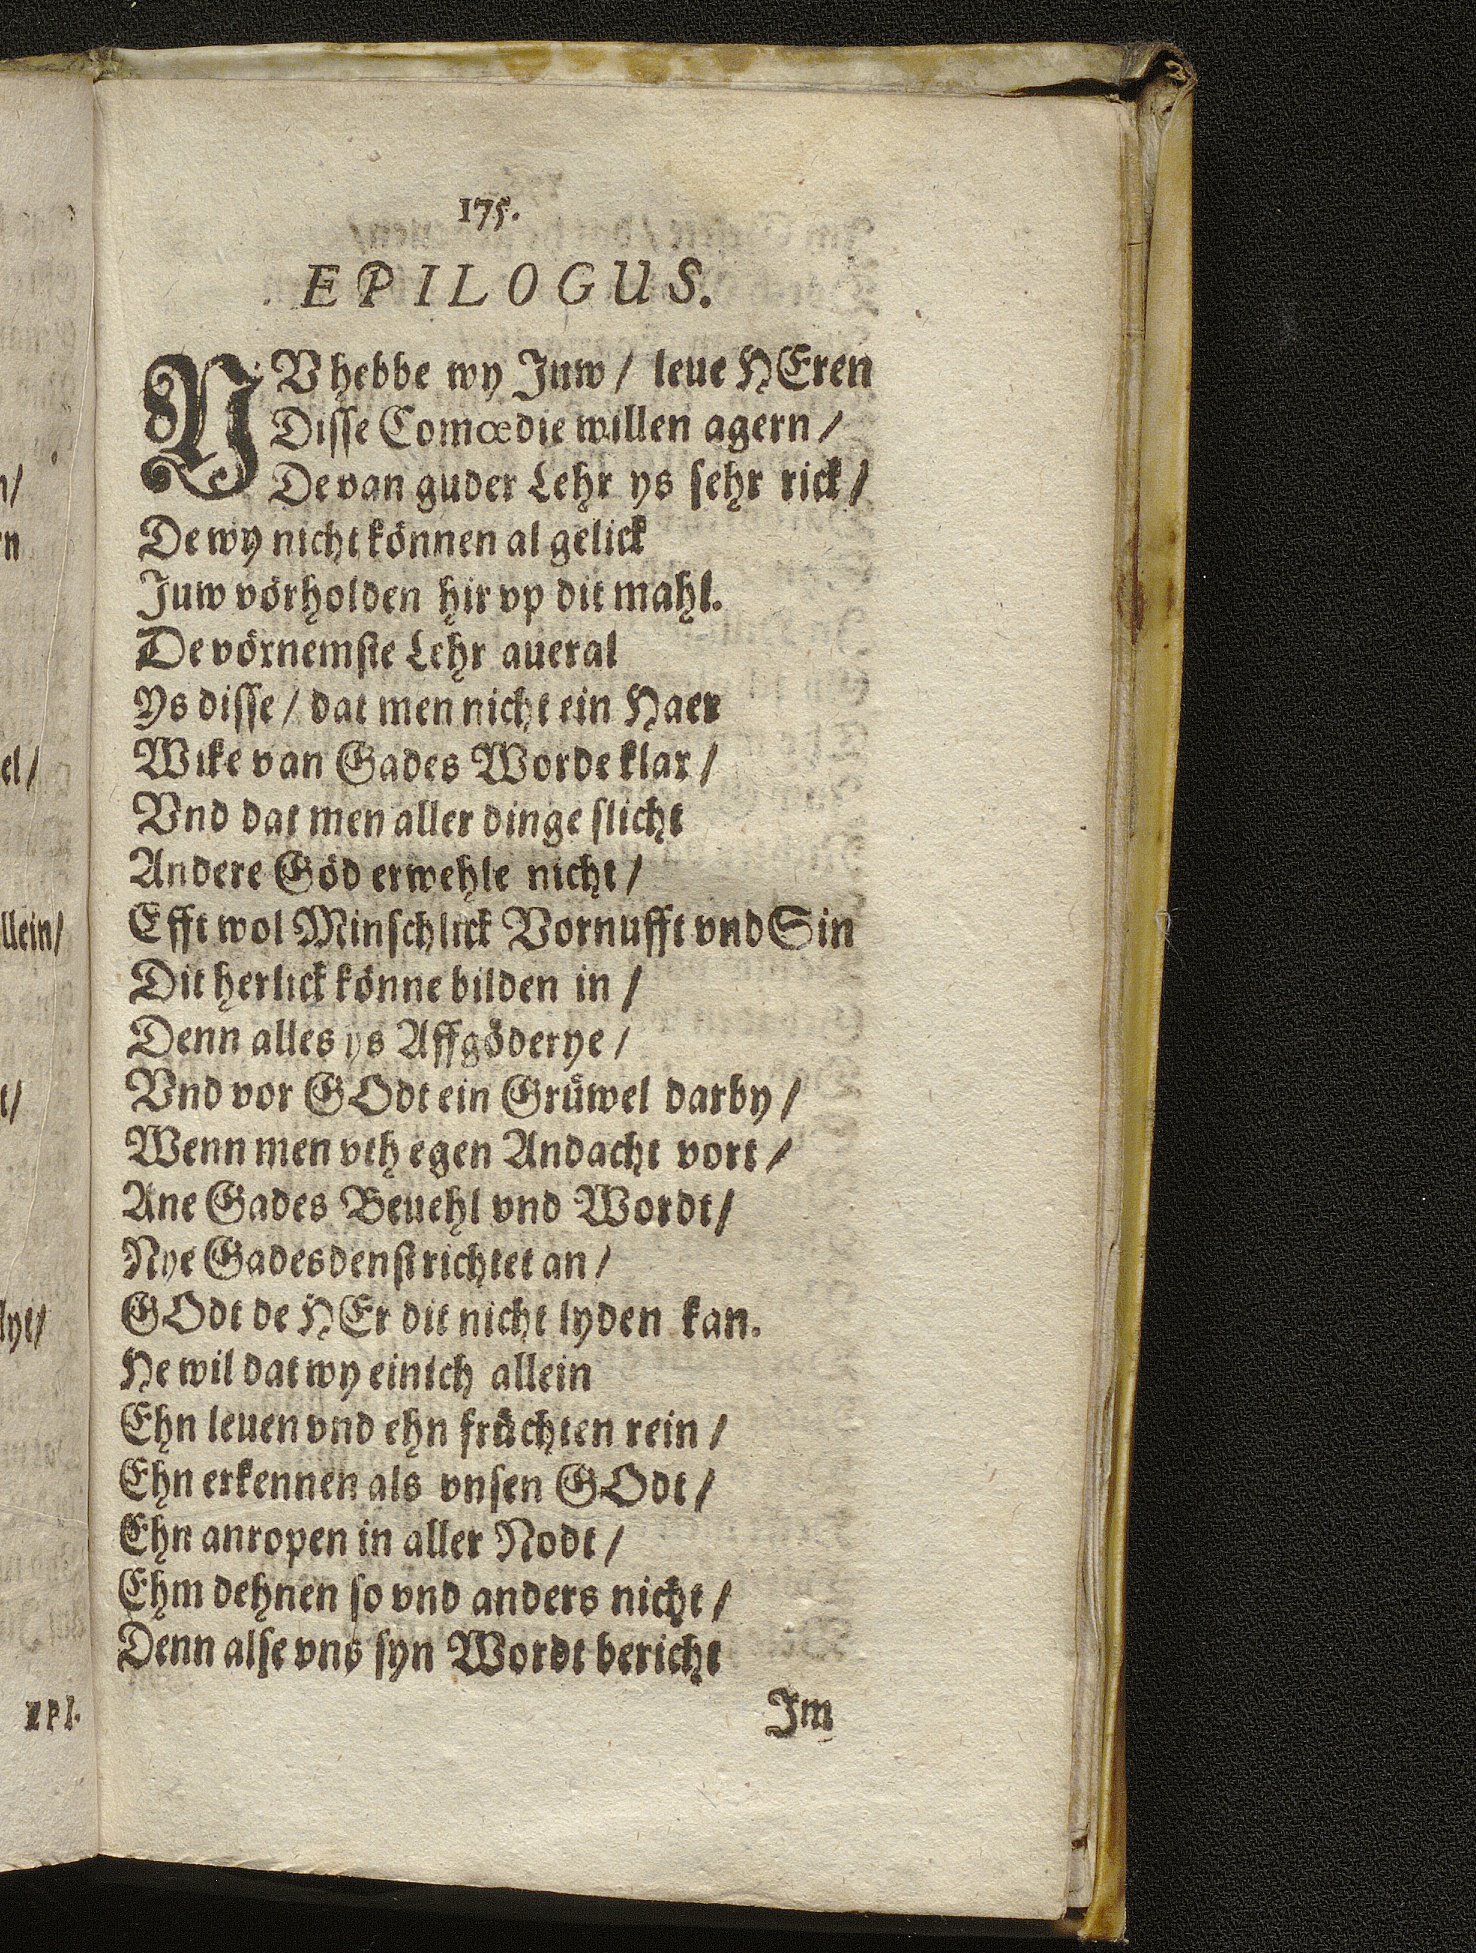 175.
EPILOGUS.
NV hebbe wy Juw / leue HEren
Disse Comœdie willen agern /
De van guder Lehr ys sehr rick /
De wy nicht können al gelick
Juw vörholden hir vp dit mahl.
De vörnemste Lehr aueral
Ys disse / dat men nicht ein Haer
Wike van Gades Worde klar /
Vnd dat men aller dinge slicht
Andere Göd erwehle nicht /
Efft wol Minschlick Vornufft vnd Sin
Dit herlick könne bilden in /
Denn alles ys Affgöderye /
Vnd vor GOdt ein Grüwel darby /
Wenn men vth egen Andacht vort /
Ane Gades Beuehl vnd Wordt /
Nye Gadesdenst richtet an /
GOdt de HEr dit nicht lyden kan.
He wil dat wy einich allein
Ehn leuen vnd ehn früchten rein /
Ehn erkennen als vnsen GOdt /
Ehn anropen in aller Nodt /
Ehm dehnen so vnd anders nicht /
Denn alse vns syn Wordt bericht
Im